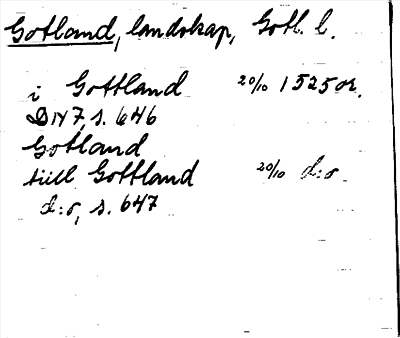 Gotland, landskap, Gotl. l.
i Gottland 20/10 1525 or.
DN 7, s. 646
Gotland
tiill Gottland 20/10 d:o.
d:o, s. 647